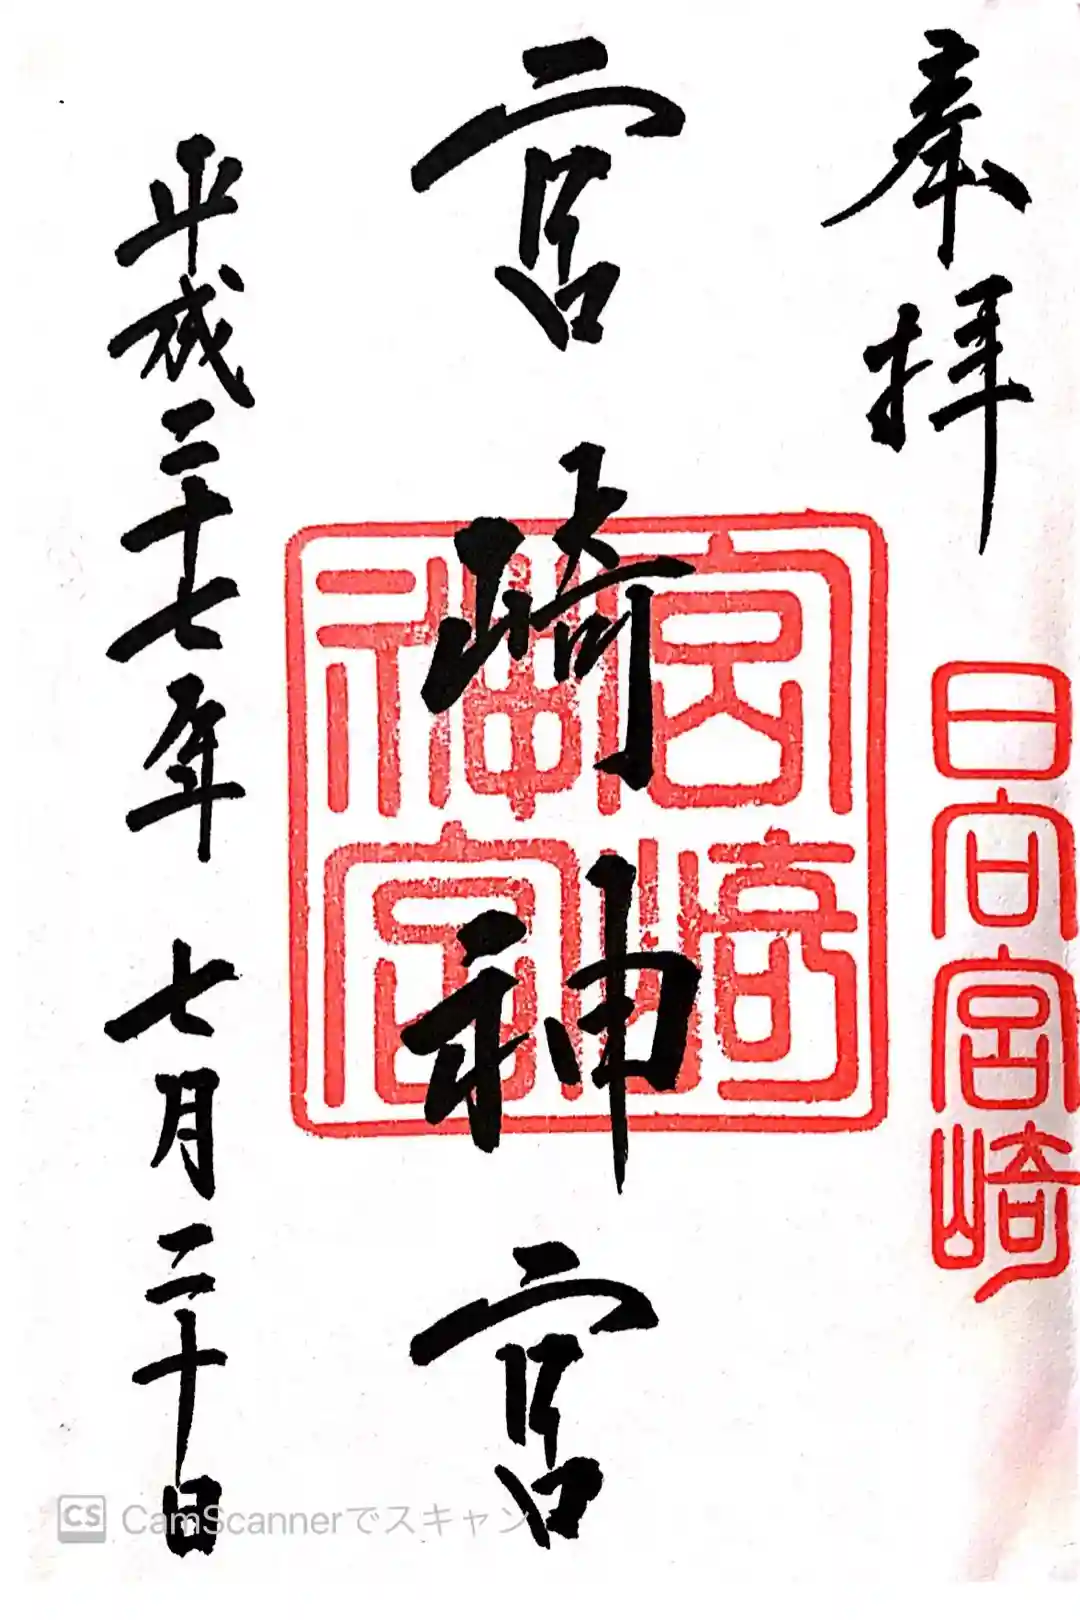 奉拝
日向宮崎
宮崎神宮
宮崎神宮
平成二十七年 七月二十日
CS CamScannerでスキャン